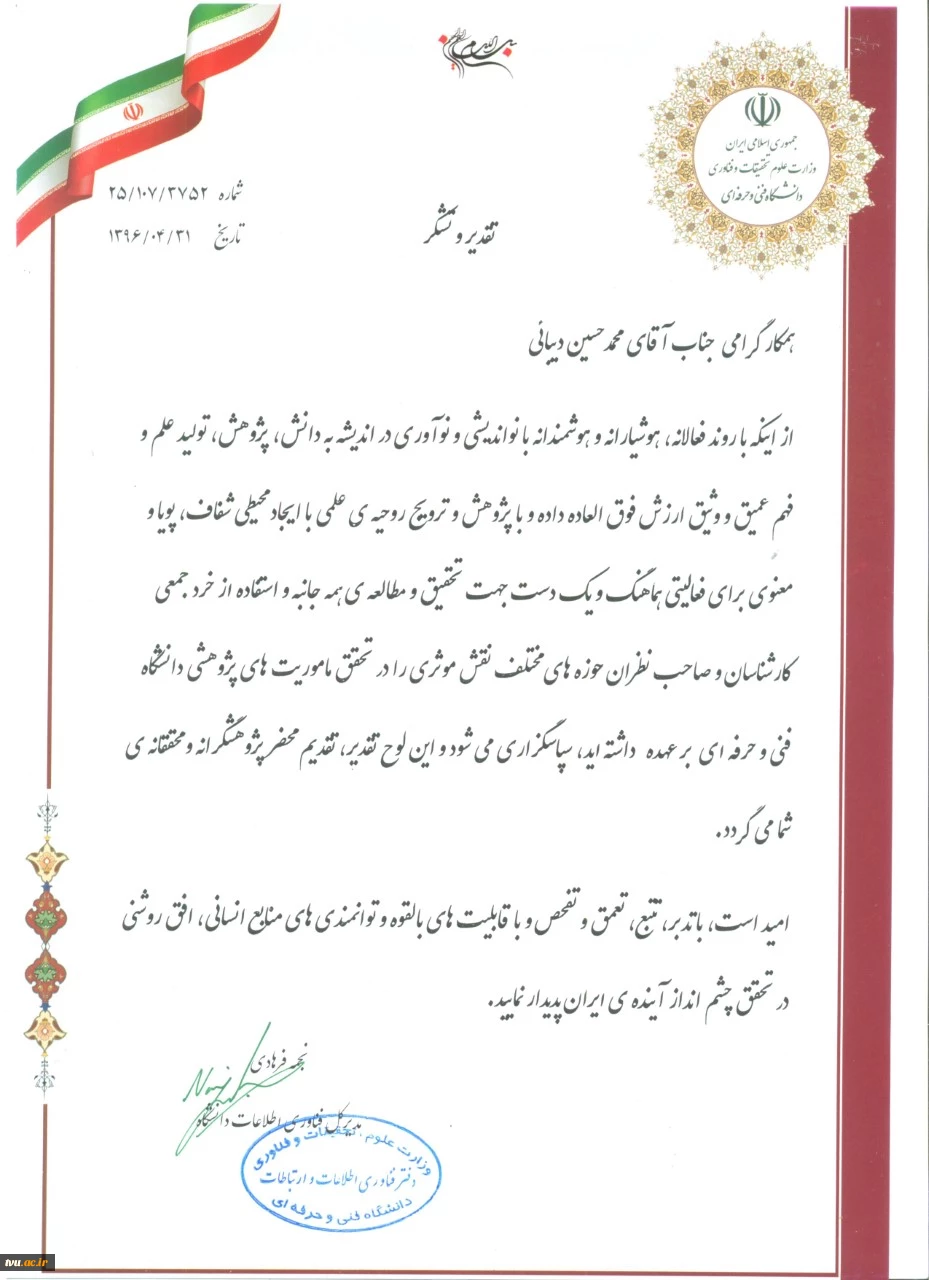 بسم الله الرحمن الرحیم
جمهوری اسلامی ایران
وزارت علوم تحقیقات و فناوری
دانشگاه فنی و حرفه ای
شماره ۲۵/۱۰۷/۳۷۵۲
تاریخ ۱۳۹۶/۰۴/۳۱
تقدیر و تشکر
همکار گرامی جناب آقای محمد حسین دیبائی
از اینکه با روند فعالانه، هوشیارانه و هوشمندانه با نواندیشی و نوآوری در اندیشه به دانش، پژوهش، تولید علم و
فهم عمیق و وثیق ارزش فوق العاده داده و با پژوهش و ترویج روحیه ی علمی با ایجاد محیطی شفاف، پویا و
معنوی برای فعالیتی هماهنگ و یک دست جهت تحقیق و مطالعه ی همه جانبه و استفاده از خرد جمعی
کارشناسان و صاحب نظران حوزه های مختلف نقش موثری را در تحقق ماموریت های پژوهشی دانشگاه
فنی و حرفه ای بر عهده داشته اید، سپاسگزاری می شود و این لوح تقدیر، تقدیم محضر پژوهشگرانه و محققانه ی
شما می گردد.
امید است، با تدبر، تتبع، تعمق و تفحص و با قابلیت های بالقوه و توانمندی های منابع انسانی، افق روشنی
در تحقق چشم انداز آینده ی ایران پدیدار نمایید.
نجمه فرهادی
مدیر کل فناوری اطلاعات دانشگاه
وزارت علوم، تحقیقات و فناوری
دفتر فناوری اطلاعات و ارتباطات
دانشگاه فنی و حرفه ای
tvu.ac.ir